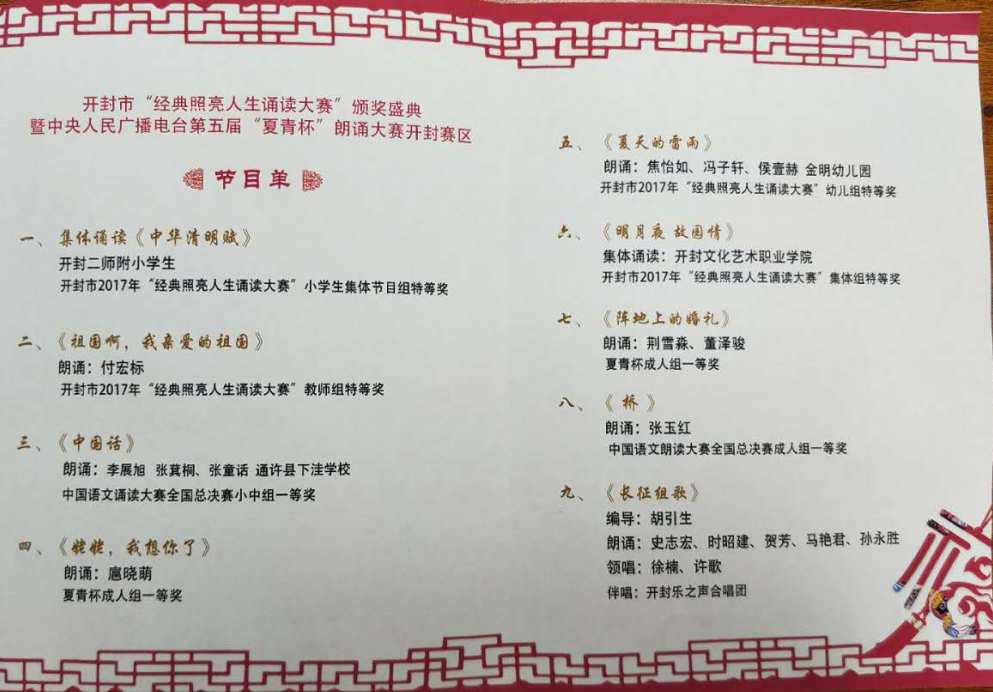 开封市“经典照亮人生诵读大赛”颁奖盛典
暨中央人民广播电台第五届“夏青杯”朗诵大赛开封赛区
节目单
一、集体诵读《中华清明赋》
开封二师附小学生
开封市2017年“经典照亮人生诵读大赛”小学生集体节目组特等奖
二、《祖国啊，我亲爱的祖国》
朗诵：付宏标
开封市2017年“经典照亮人生诵读大赛”教师组特等奖
三、《中国话》
朗诵：李展旭 张萁桐、张童话 通许县下洼学校
中国语文诵读大赛全国总决赛小中组一等奖
四、《姥姥，我想你了》
朗诵：扈晓萌
夏青杯成人组一等奖
五、《夏天的雷雨》
朗诵：焦怡如、冯子轩、侯壹赫 金明幼儿园
开封市2017年“经典照亮人生诵读大赛”幼儿组特等奖
六、《明月夜 故园情》
集体诵读：开封文化艺术职业学院
开封市2017年“经典照亮人生诵读大赛”集体组特等奖
七、《阵地上的婚礼》
朗诵：荆雪淼、董泽骏
夏青杯成人组一等奖
八、《 桥 》
朗诵：张玉红
中国语文朗读大赛全国总决赛成人组一等奖
九、《长征组歌》
编导：胡引生
朗诵：史志宏、时昭建、贺芳、马艳君、孙永胜
领唱：徐楠、许歌
伴唱：开封乐之声合唱团